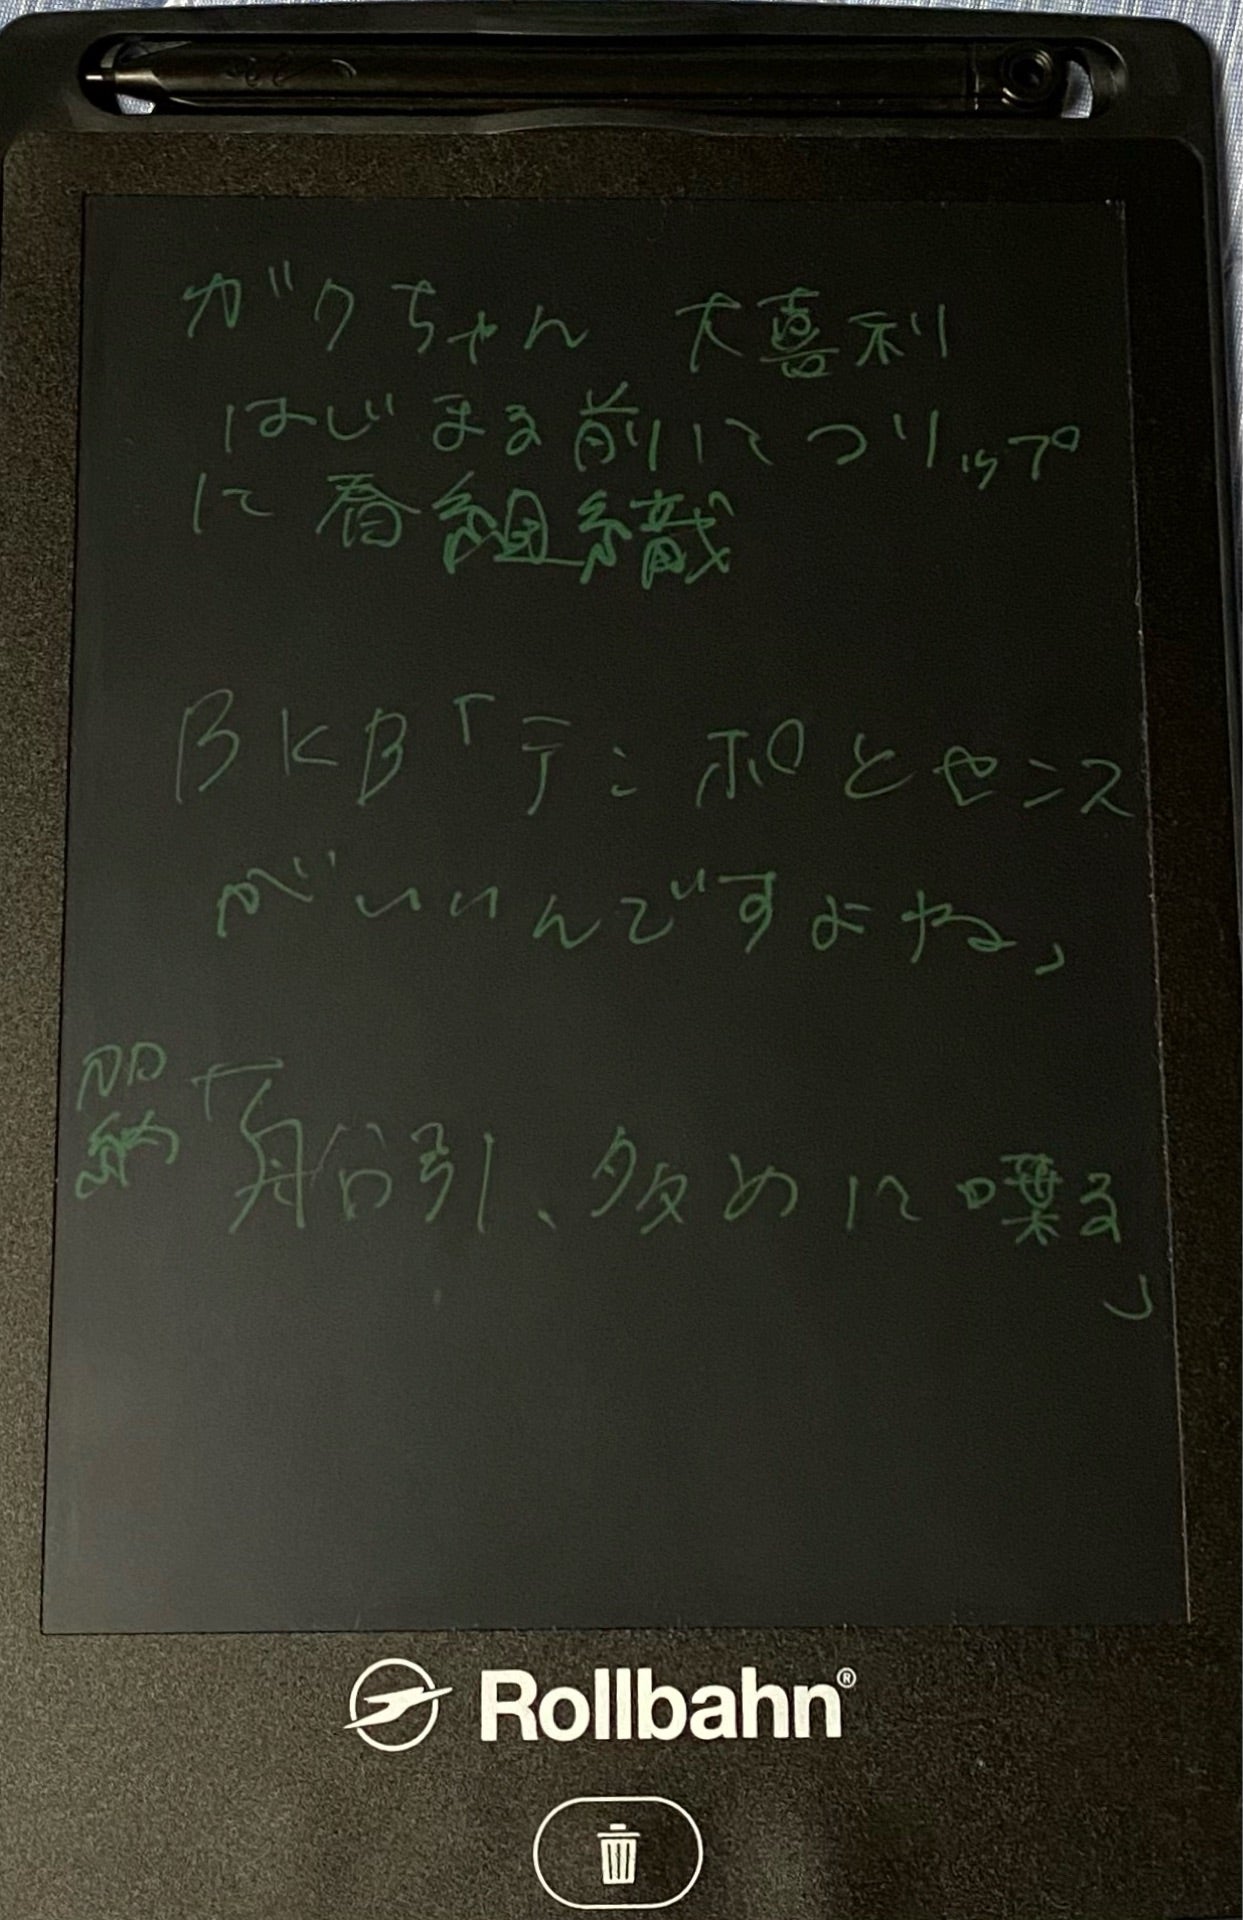 ガクちゃん 大喜利
はじまる前にてフリップ
に春組織
BKB「テンポとセンス
がいいんですよね」
「船引、多めに喋る
」
Rollbahn®